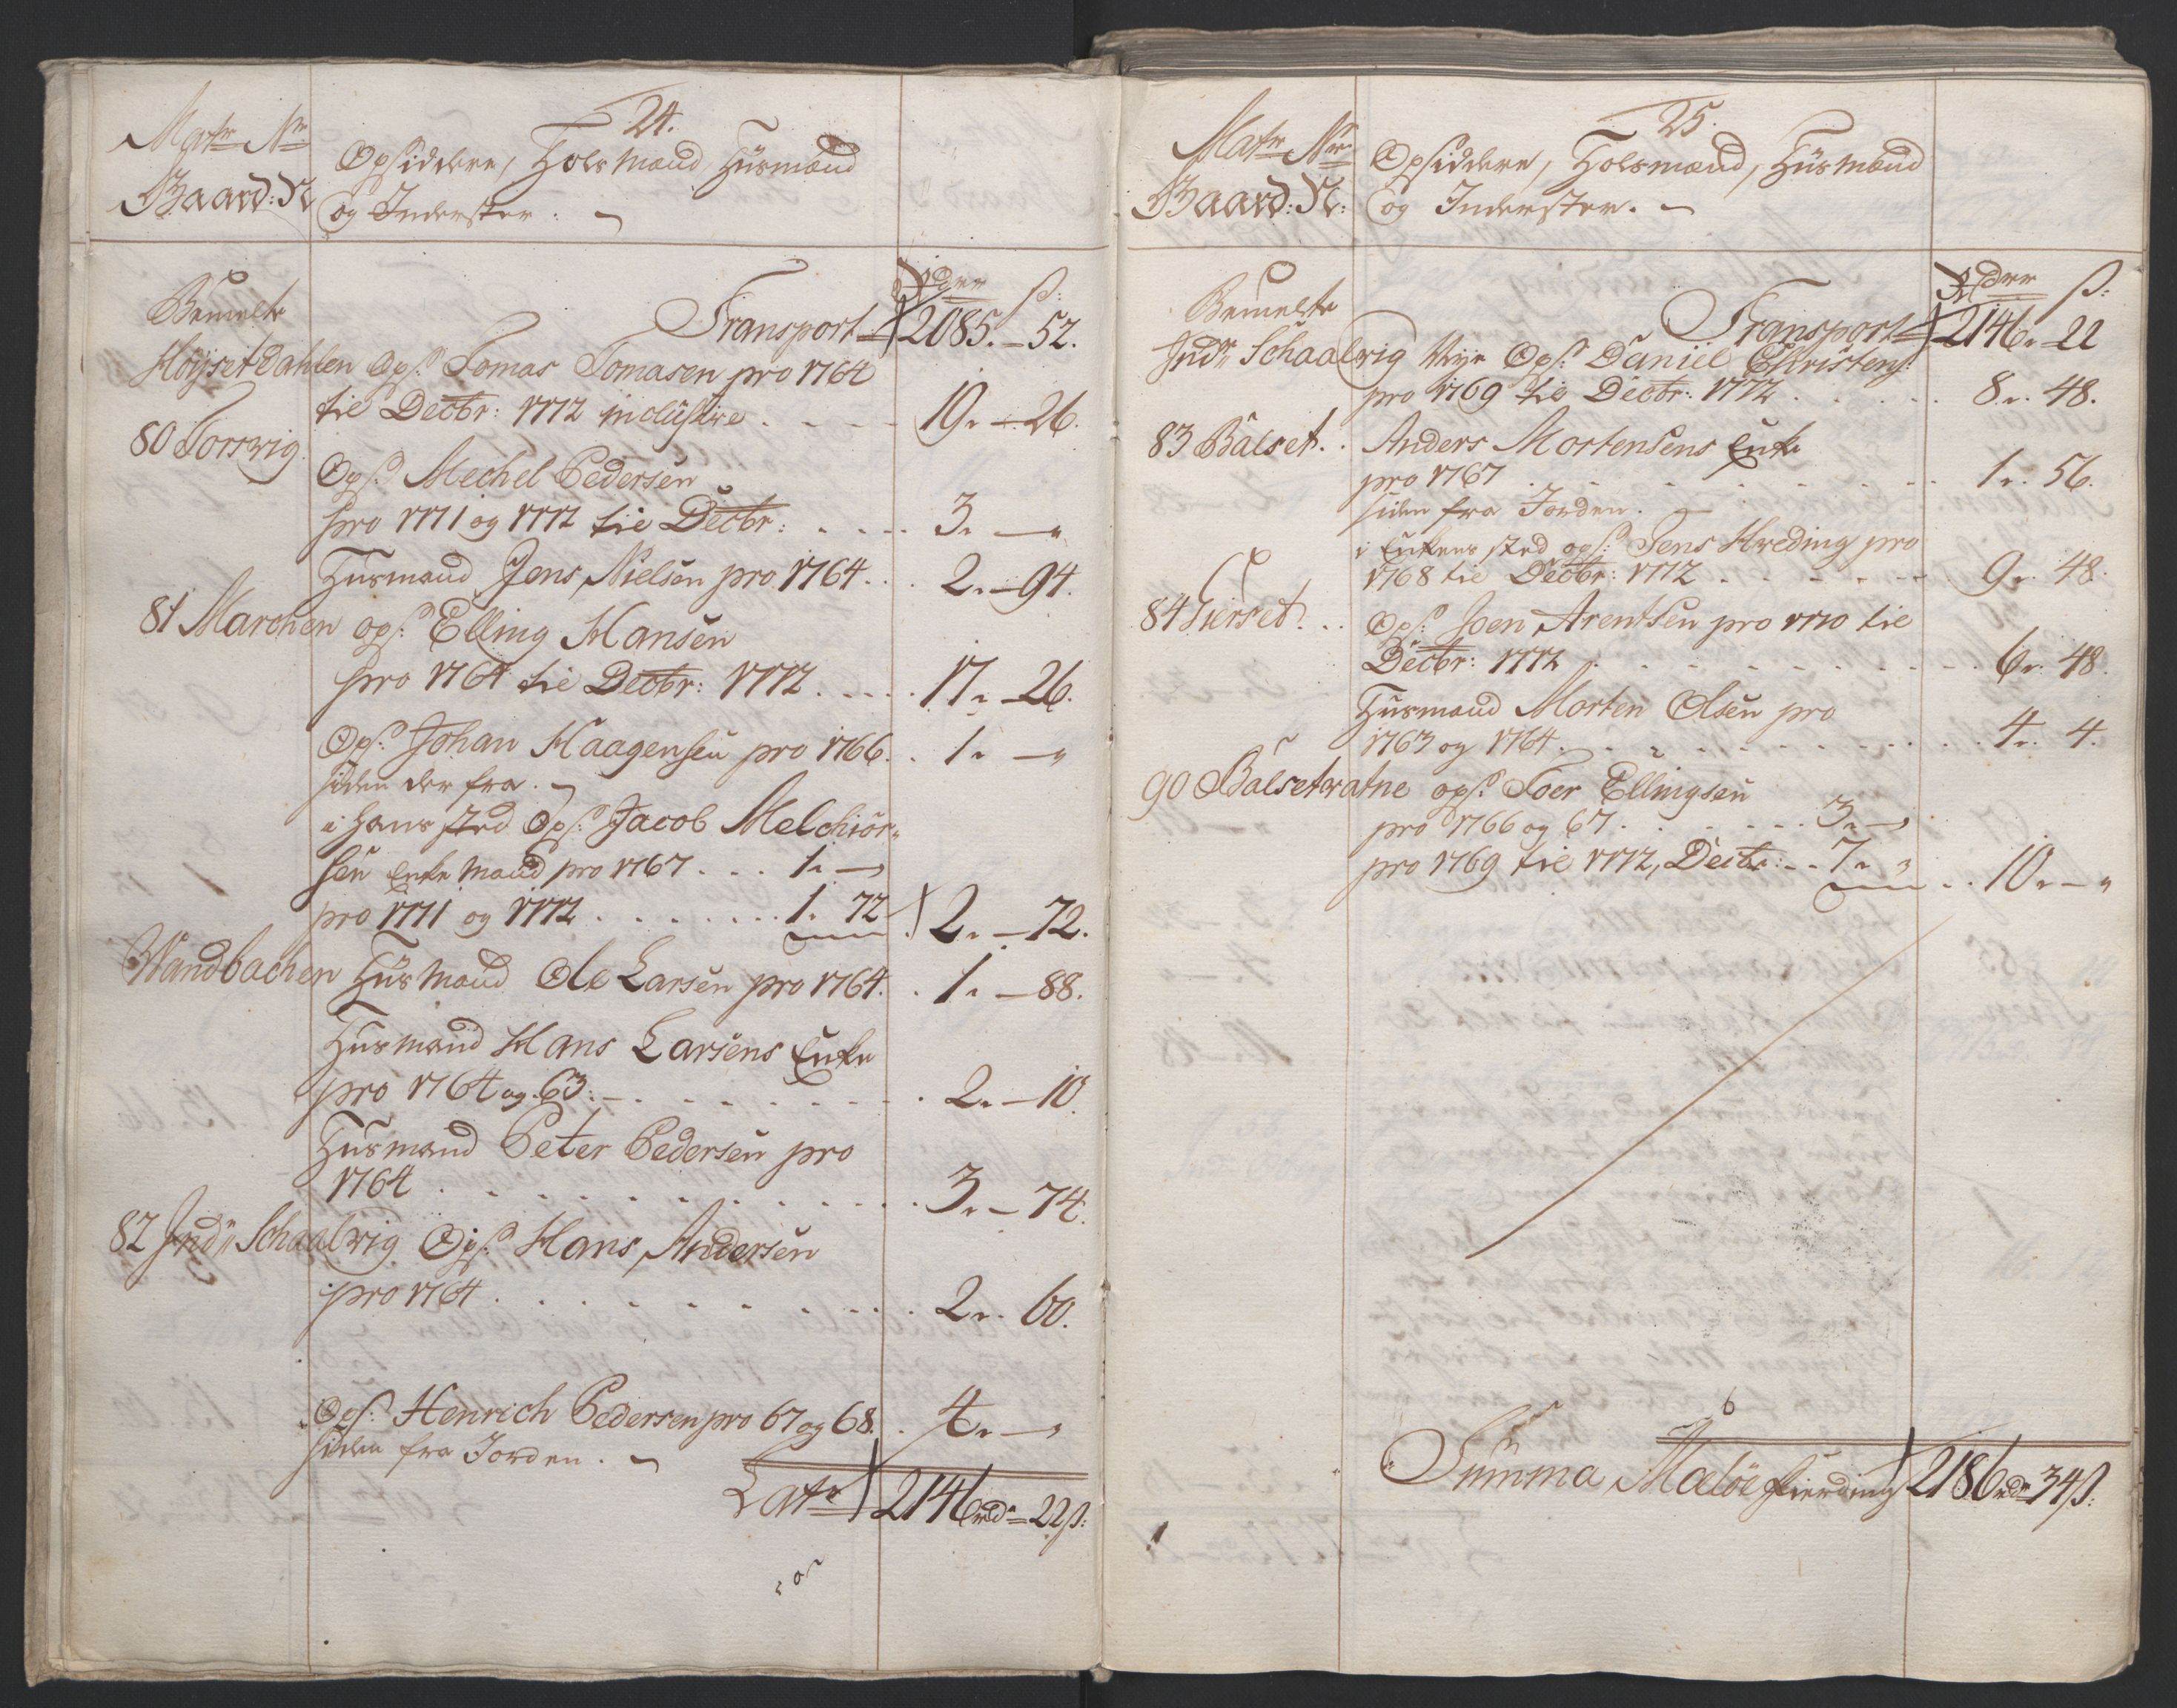 24.
Matr Nr
Opsiddere, Holsmænd Hüsmænd
Gaard: N
og Inderster.
Rdr ß:
Bemelte
Transport 2085. - 52.
Höysetdahlen Ops: Tomas Tomasen pro 1764
til Decbr: 1772 inclusive . . . . 19. - 26.
80 Torsvig.
Ops: Mechel Pedersen
pro 1771 og 1772 til Decbr: . . . . 3. - "
Husmand Jens Nielsen pro 1764 . . . 2. - 94.
81 Marchen ops: Elling Hansen
pro 1764 til Decbr: 1772 . . . . 17. - 26.
Ops: Johan Haagensen pro 1766 . . 1. - "
siden der fra.
i hans sted Ops: Jacob Melchior-
sen Enke Mand pro 1767 . . . 1. -
pro 1771 og 1772 . . . . . . . 1. 72 2. - 72.
Wandbachen Hüsmand Ole Larsen pro 1764. . 1. - 88.
Husmand Hans Larsens Enke
pro 1764 og 63. - . . . . . . . 2. - 10.
Husmand Peter Pedersen pro
1764 . . . . . . . . . . . 3. - 74.
82 Indr Schaalvig Ops: Hans Andersen
pro 1764 . . . . . . . . . . 2. 60.
Ops: Henrich Pedersen pro 67 og 68. . 4. - "
siden fra Jorden.
Latr 2146 rdr 22 ß:
25.
Matr Nr
Opsiddere, Holsmænd, Hüsmænd
Gaard: N:
og Inderster.
Rdr ß:
Bemelte
Transport 2146. 22
Indr Schaalvig Nye Ops: Daniel Christens:
pro 1769 til Decbr: 1772 . . . . . 8. 48.
83 Balset. . Anders Mortensens Enke
pro 1767 . . . . . . . . 1. 56.
siden fra Jorden.
i Enkens sted ops: Jens Hveding pro
1768 til Decbr: 1772 . . . . . . 9. 48.
84 Tierset. . . Ops: Joen Arentsen pro 1770 til
Decbr: 1772 . . . . . . . . . 6. 48.
Husmand Morten Olsen pro
1763 og 1764 . . . . . . . . . . 4. 4.
90 Balsetvatne ops: Joer Ellingsen
pro 1766 og 67 . . . . . . . 3. -
pro 1769 til 1772, Decbr: . . 7. " . . 10. - "
Summa Maløe fierding 2186 rdr 34 ß: